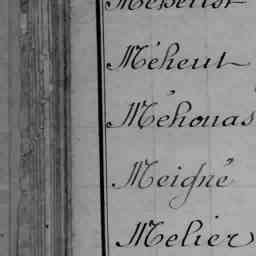 Méheut
Méhouas
Meigné
Melier